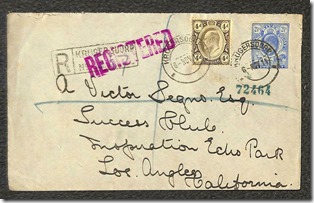 R KRUGERSDORP
REGISTERED
KRUGERSDORP
72464
A Victor Segno Esq.
Success Club.
Inspiration Echo Park
Los Angeles
California.